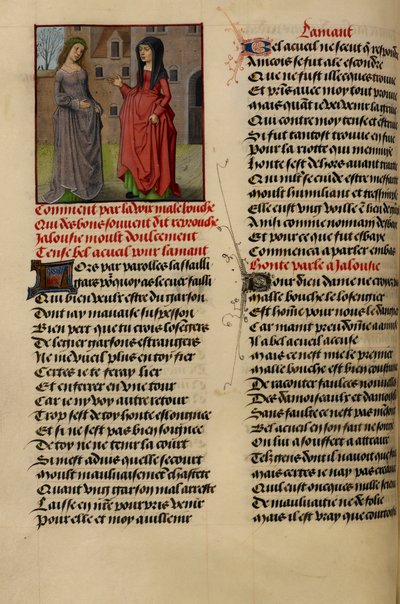 Comment par la voix male bouche
Qui des bons souvent dit reprouche
Jalousie moult doulcement
Tense bel acueil pour lamant
Lors par parolles lassailli
Gars pour quoy as le cuer failli
Qui bien veulx estre du garson
Dont iay mauuaise suspesson
Bien pert que tu crois losengiers
De legier garsons estrangiers
Ne me vueil plus en toy fier
Certes ie te feray lier
Et enserrer en vne tour
Car ie ny voy autre retour
Trop sest de toy honte eslongnee
Et si ne sest pas bien songnee
De toy ne te tenir la court
Si mest aduis quelle secourt
Moult mauluaisement chastete
Quant vng garson mal arreste
Laisse en nostre pourpris venir
Pour elle et moy auillenir
Lamant
Bel acueil ne sceut que respondre
Aincois se fut ale escondre
Que ne fust illecques trouue
Et prins auec moy tout prouue
Mais quant ie vey venir la
Qui contre moy tense et estriue
Si fut tantost trouue en fuie
Pour la riotte qui mennuye
Honte sest dehors auant traitte
Qui
Moult humiliant et tressimple
Elle eust vng voille en lieu de
Ainsi comme nonnain
Et pour ce que fut esbaye
Commenca a parler en bas
Honte parle a Jalousie
Pour dieu dame ne croyes
Malle bouche le losengier
Est homme pour nous
Car maint preudomme a
Il a bel acueil accuse
Mais ce nest mie le premier
Malle bouche est bien coustumier
De raconter faulces nouuelles
Des damoiseaulx et damoiselles
Sans faulte ce nest pas
Bel acueil en son fait
On lui a souffert a attraire
Telz gens dont il nauoit que faire
Mais certes ie nay pas creance
Quil eust oncques nulle
De mauluaitie ne de folie
Mais il est vray que courtoisie